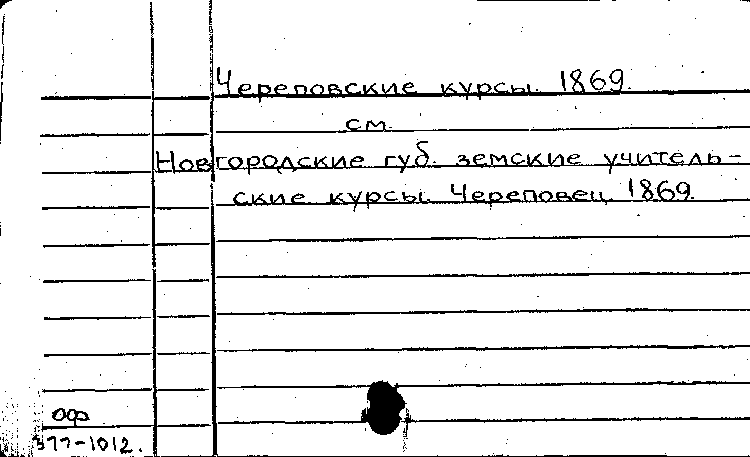 Череповские курсы. 1869.
см.
Новгородские губ. земские учитель-
ские курсы. Череповец. 1869.
оф
377-1012.